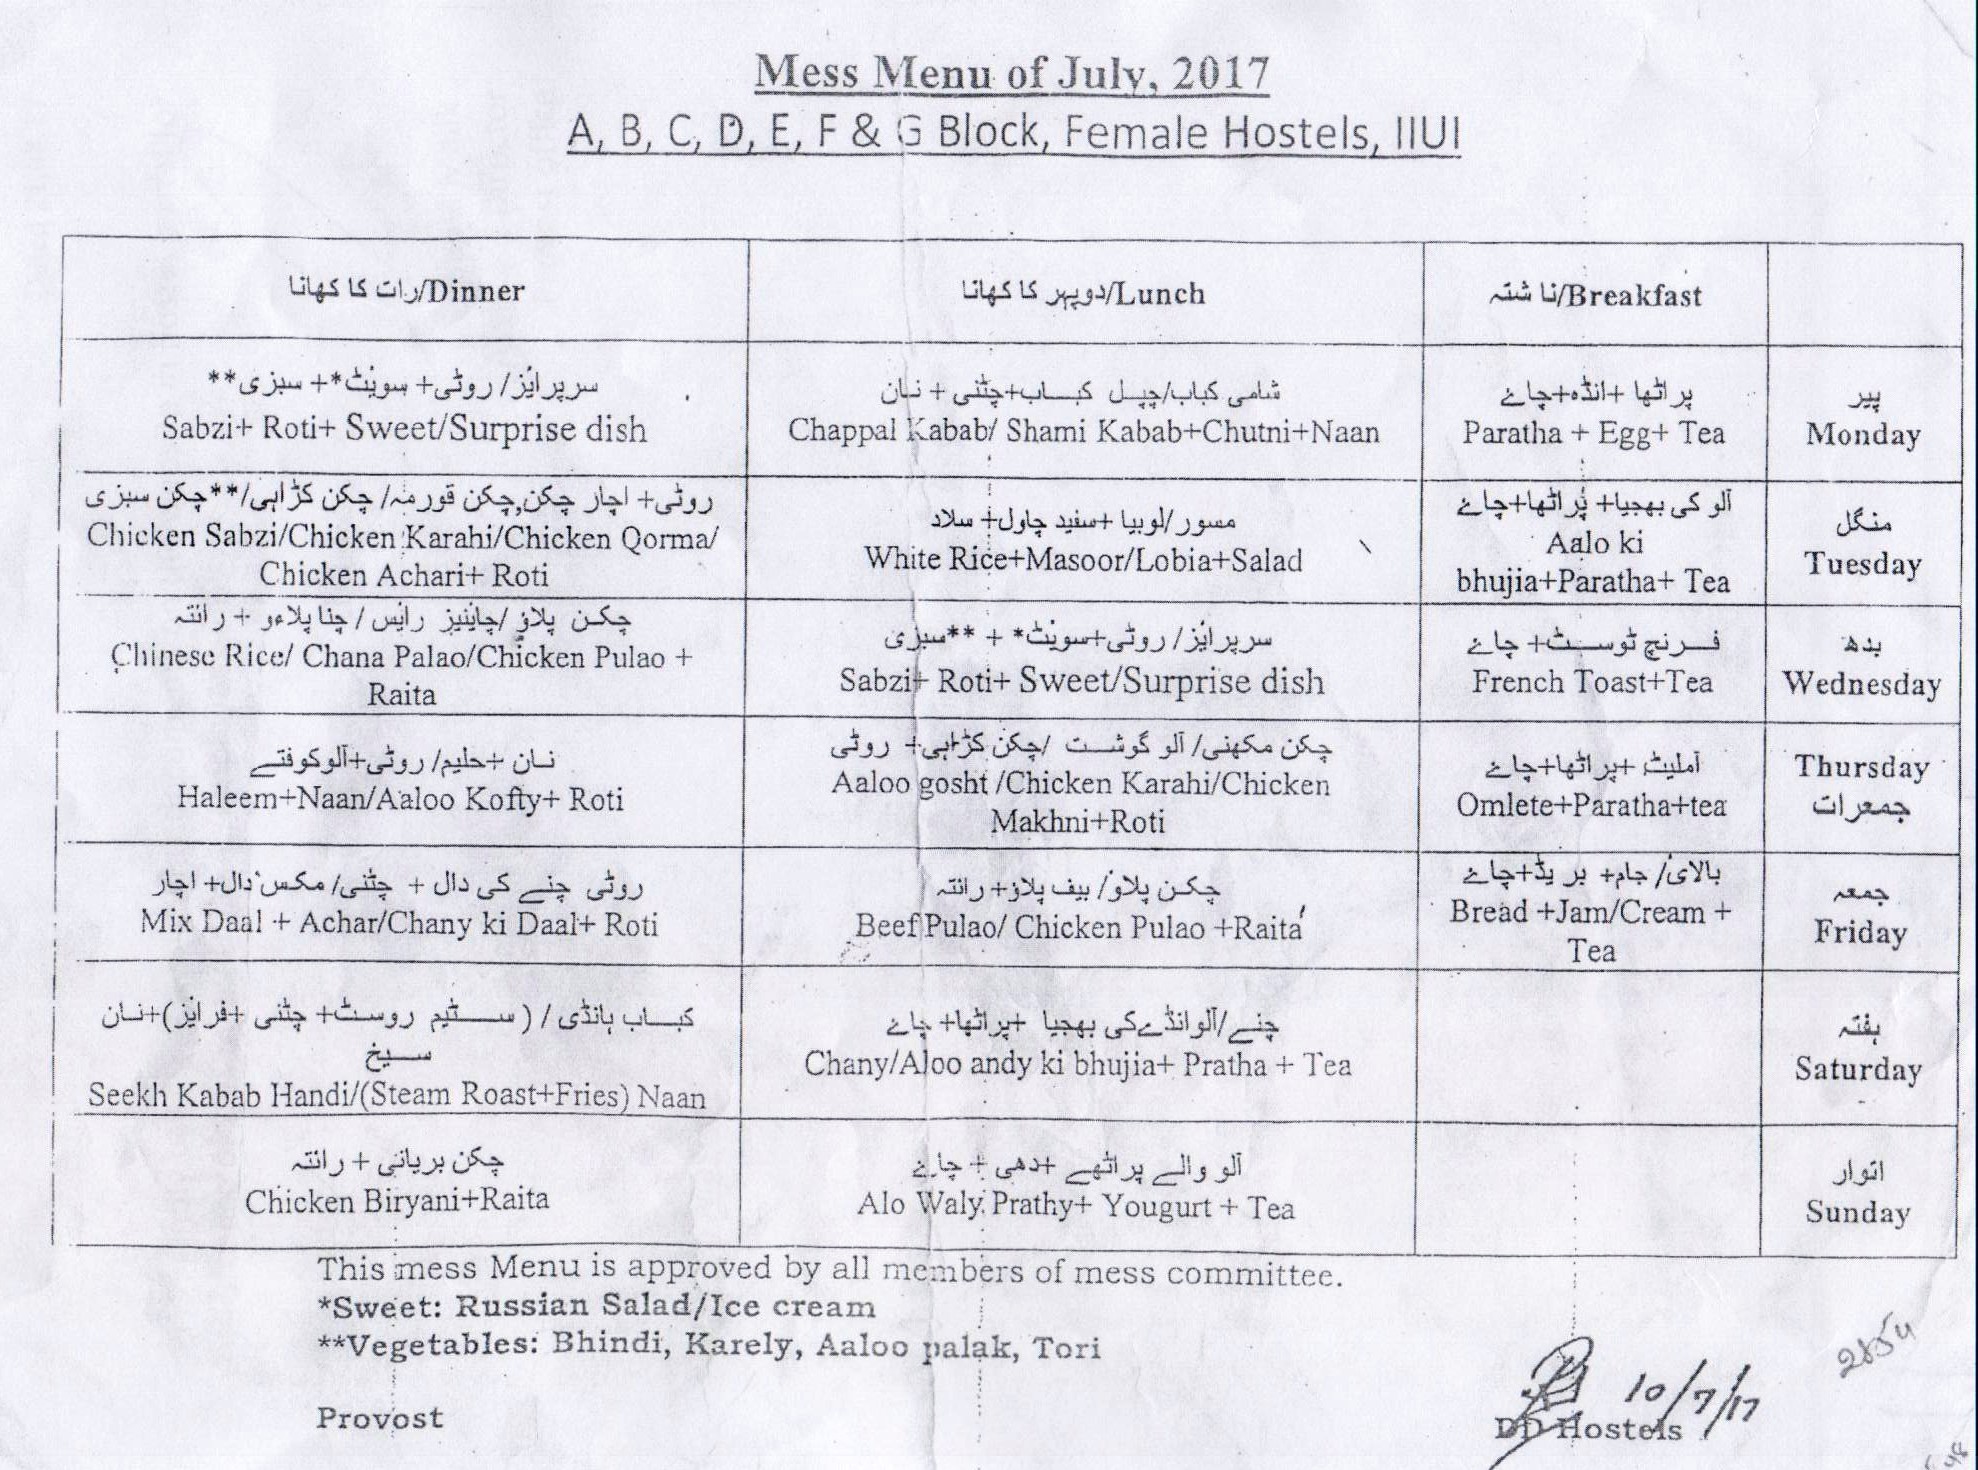 Mess Menu of July, 2017
A, B, C, D, E, F & G Block, Female Hostels, IIUI
رات کا کھانا/Dinner
دوپہر کا کھانا/Lunch
نا شتہ/Breakfast
سرپرائز/ روٹی+ سویٹ*+ سبزی**
Sabzi+ Roti+ Sweet/Surprise dish
شامی کباب/چپل کباب+چٹنی + نان
Chappal Kabab/ Shami Kabab+Chutni+Naan
پراٹھا +انڈہ+چاۓ
Paratha + Egg+ Tea
پیر
Monday
روٹی+ اچار چکن,چکن قورمہ/ چکن کڑاہی/**چکن سبزی
Chicken Sabzi/Chicken Karahi/Chicken Qorma/
Chicken Achari+ Roti
مسور/لوبیا +سفید چاول+ سلاد
White Rice+Masoor/Lobia+Salad
آلو کی بھجیا+ پراٹھا+چاۓ
Aalo ki
bhujia+Paratha+ Tea
منگل
Tuesday
چکن پلاؤ /چاینیز رایس / چنا پلاءو + رائتہ
Chinese Rice/ Chana Palao/Chicken Pulao +
Raita
سرپرایز/ روٹی+سویٹ* + **سبزی
Sabzi+ Roti+ Sweet/Surprise dish
فرنچ ٹوسٹ+ چاۓ
French Toast+Tea
بدھ
Wednesday
نان +حلیم/ روٹی+آلوکوفتے
Haleem+Naan/Aaloo Kofty+ Roti
چکن مکھنی/ آلو گوشت /چکن کڑاہی+ روٹی
Aaloo gosht /Chicken Karahi/Chicken
Makhni+Roti
آملیٹ +پراٹھا+چاۓ
Omlete+Paratha+tea
Thursday
جمعرات
روٹی چنے کی دال + چٹنی/ مکس دال+ اچار
Mix Daal + Achar/Chany ki Daal+ Roti
چکن پلاؤ/ بیف پلاؤ+ رائتہ
Beef Pulao/ Chicken Pulao +Raita
بالائ/ جام+ بریڈ+چاۓ
Bread +Jam/Cream +
Tea
جمعہ
Friday
کباب ہانڈی / ( سٹیم روسٹ+ چٹنی +فرایز)+نان
سیخ
Seekh Kabab Handi/(Steam Roast+Fries) Naan
چنے/آلوانڈےکی بھجیا +پراٹھا+ چاۓ
Chany/Aloo andy ki bhujia+ Pratha + Tea
ہفتہ
Saturday
چکن بریانی + رائتہ
Chicken Biryani+Raita
آلو والے پراٹھے +دھی + چاۓ
Alo Waly Prathy+ Yougurt + Tea
اتوار
Sunday
This mess Menu is approved by all members of mess committee.
*Sweet: Russian Salad/Ice cream
**Vegetables: Bhindi, Karely, Aaloo palak, Tori
Provost
10/7/17
DD Hostels